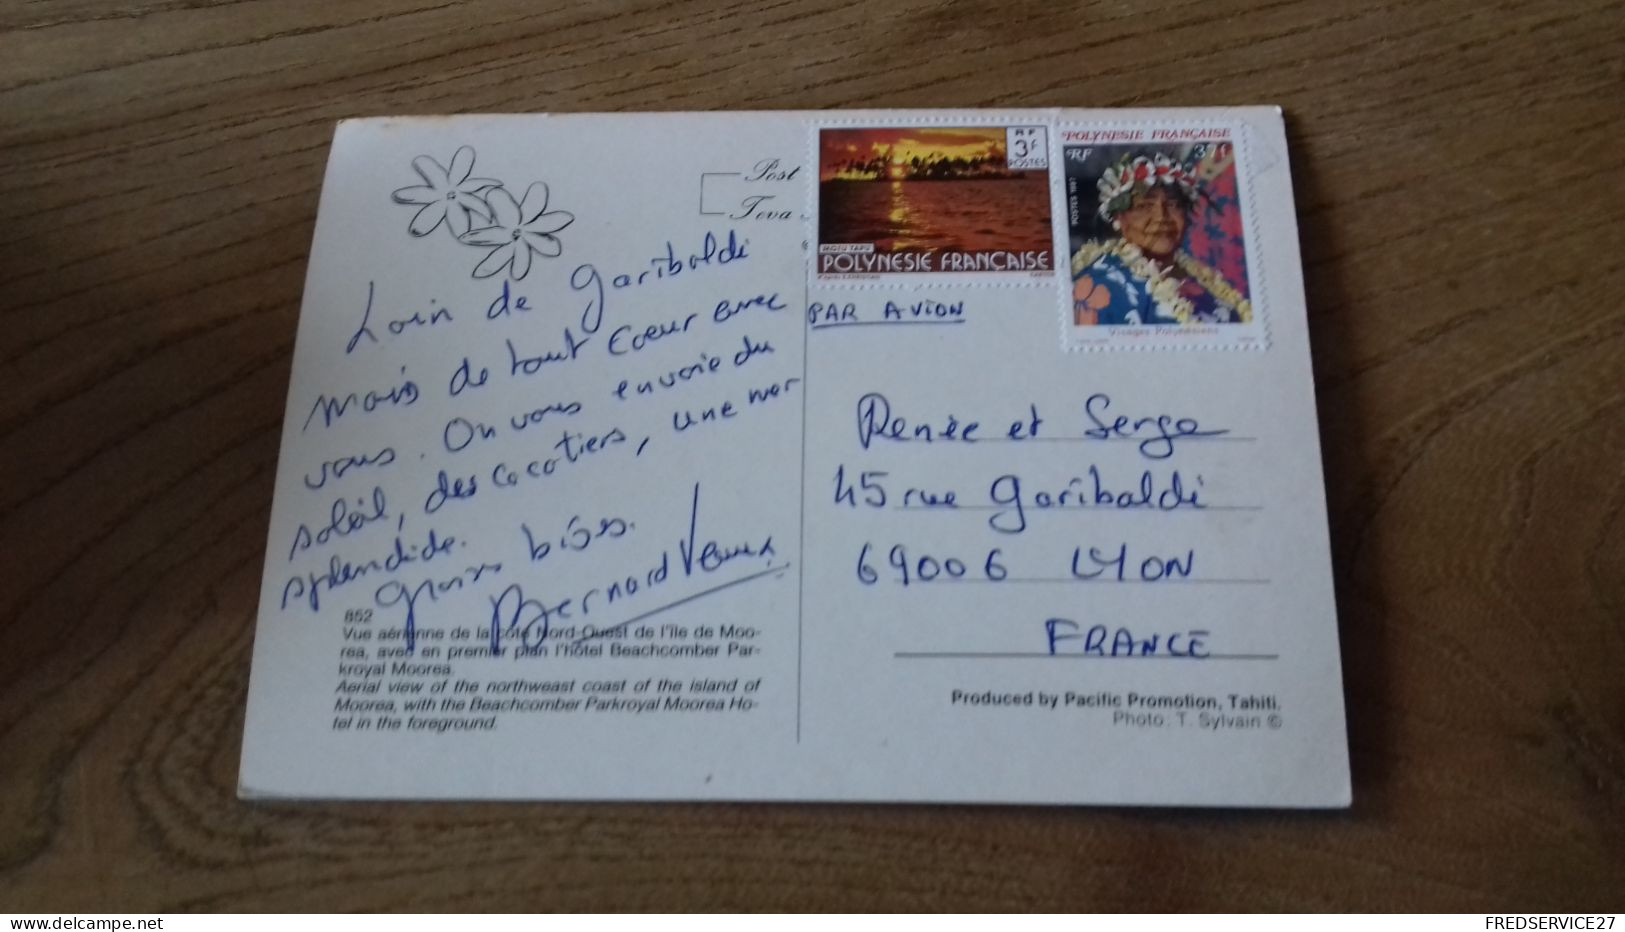 Post
Teva
RF
3F
POSTES
MOTU TAPU
POLYNESIE FRANÇAISE
POLYNESIE FRANÇAISE
RF 37f
POSTES 1987
Visages Polynésiens
PAR AVION
Loin de Garibaldi
mais de tout coeur avec
vous. On vous envoie du
soleil, des cocotiers, une mer
splendide.
Gross bises.
Bernard
Renée et Serge
45 rue Garibaldi
69006 LYON
FRANCE
852
Vue aérienne de la côte Nord-Ouest de l'île de Moo-
rea, avec en premier plan l'hôtel Beachcomber Par-
kroyal Moorea.
Aerial view of the northweast coast of the island of
Moorea, with the Beachcomber Parkroyal Moorea Ho-
tel in the foreground.
Produced by Pacific Promotion, Tahiti.
Photo: T. Sylvain ©
FREDSERVICE27